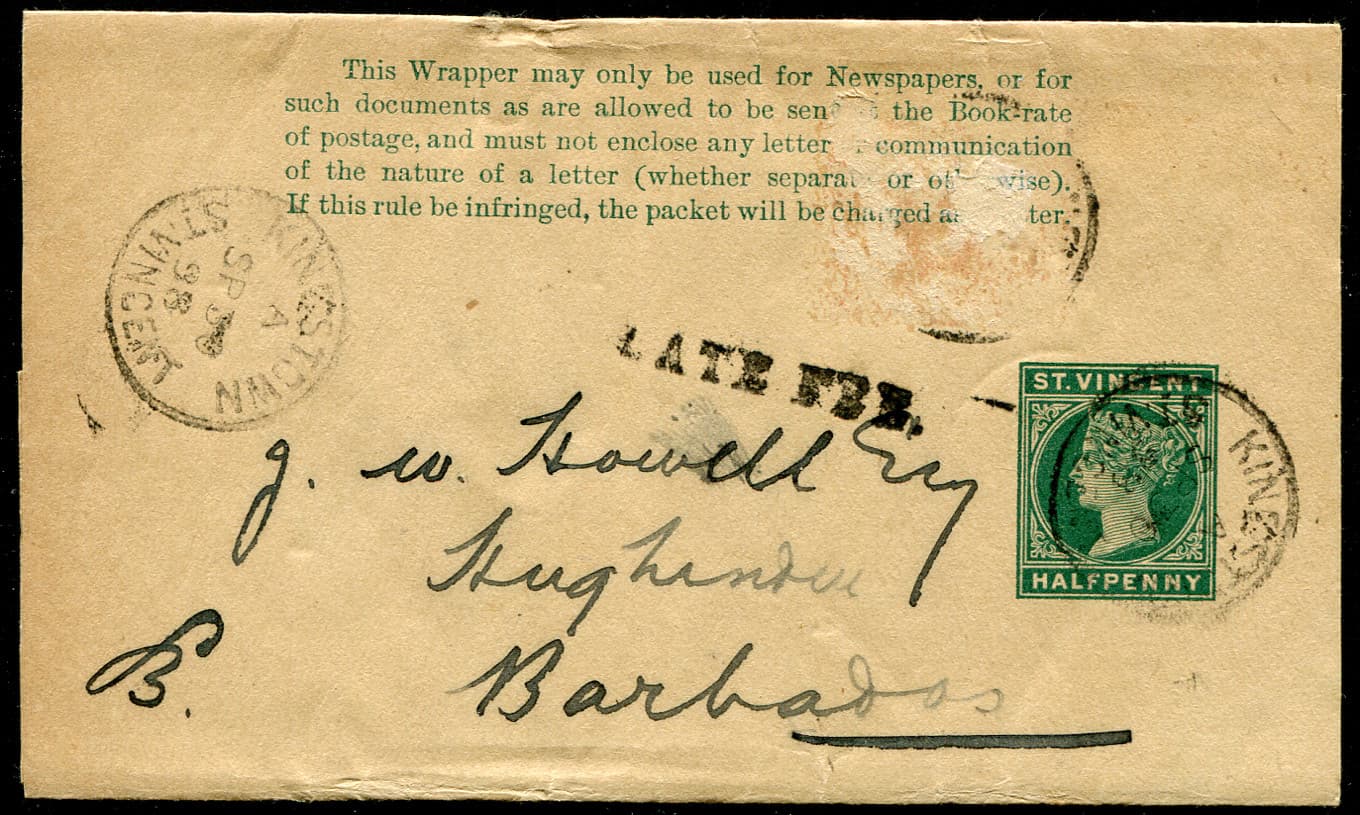 This Wrapper may only be used for Newspapers, or for
such documents as are allowed to be sen the Book-rate
of postage, and must not enclose any letter communication
of the nature of a letter (whether separat or ot wise).
If this rule be infringed, the packet will be charged a ter.
KINGSTOWN
ST. VINCENT
A
SP
98
LATE FEE.
ST. VINCENT
HALFPENNY
KINGST
J. W. Howell Esq
Hughenden
B.
Barbados